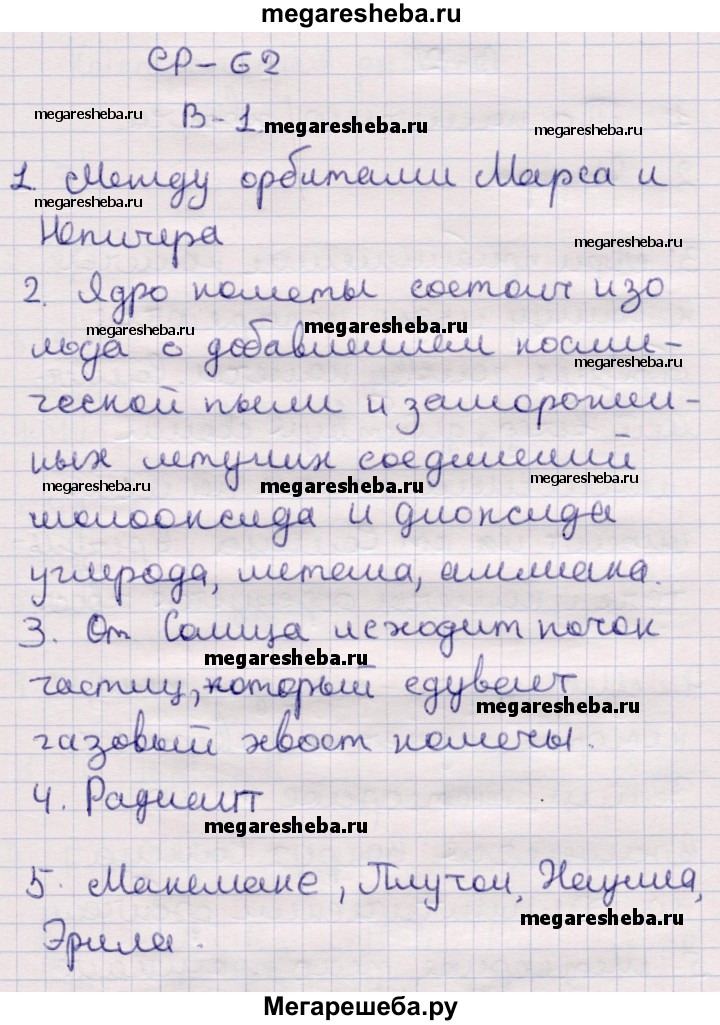 megaresheba.ru
СР-62
megaresheba.ru megaresheba.ru
В-1 megaresheba.ru
1. Между орбитами Марса и
megaresheba.ru
Юпитера megaresheba.ru
2. Ядро кометы состоит изо
megaresheba.ru megaresheba.ru
льда с добавлением косми-
megaresheba.ru
ческой пыли и заморожен-
ных летучих соединений
megaresheba.ru megaresheba.ru megaresheba.ru
монооксида и диоксида
углерода, метана, аммиака.
3. От Солнца исходит поток
megaresheba.ru
частиц, который сдувает
megaresheba.ru
газовый хвост кометы.
4. Радиант
megaresheba.ru
5. Макемаке, Плутон, Хаумеа,
megaresheba.ru
Эрида.
Мегарешеба.ру